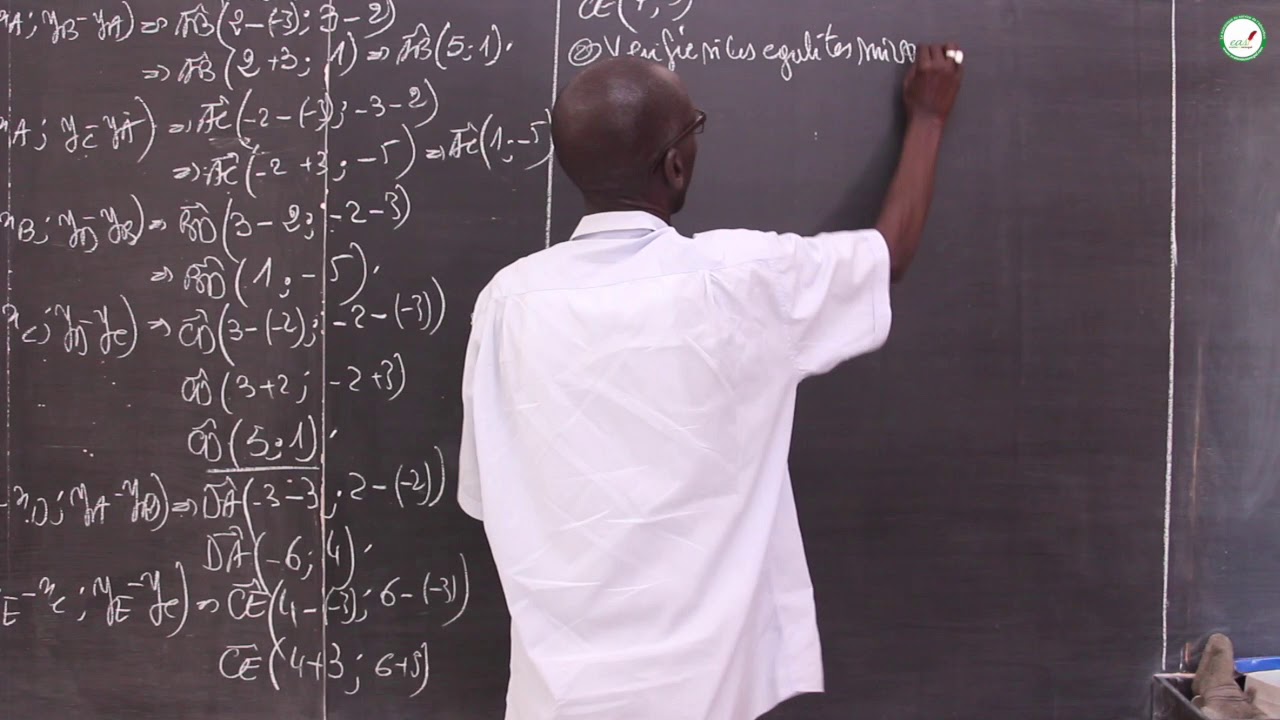 x_A ; y_B - y_A) ⇒ AB(2-(-3); 3-2)
⇒ AB(2+3; 1) ⇒ AB(5;1).
x_A ; y_C - y_A) ⇒ AC(-2-(-3); -3-2)
⇒ AC(-2+3; -5) ⇒ AC(1;-5)
x_B ; y_D - y_B) ⇒ BD(3-2; -2-3)
⇒ BD(1; -5).
x_C ; y_D - y_C) ⇒ CD(3-(-2); -2-(-3))
CD(3+2; -2+3)
CD(5;1).
- x_D ; y_A - y_D) ⇒ DA(-3-3; 2-(-2))
DA(-6; 4).
E - x_C ; y_E - y_C) ⇒ CE(4-(-3); 6-(-3))
CE(4+3; 6+3)
② Vérifie si les egalités